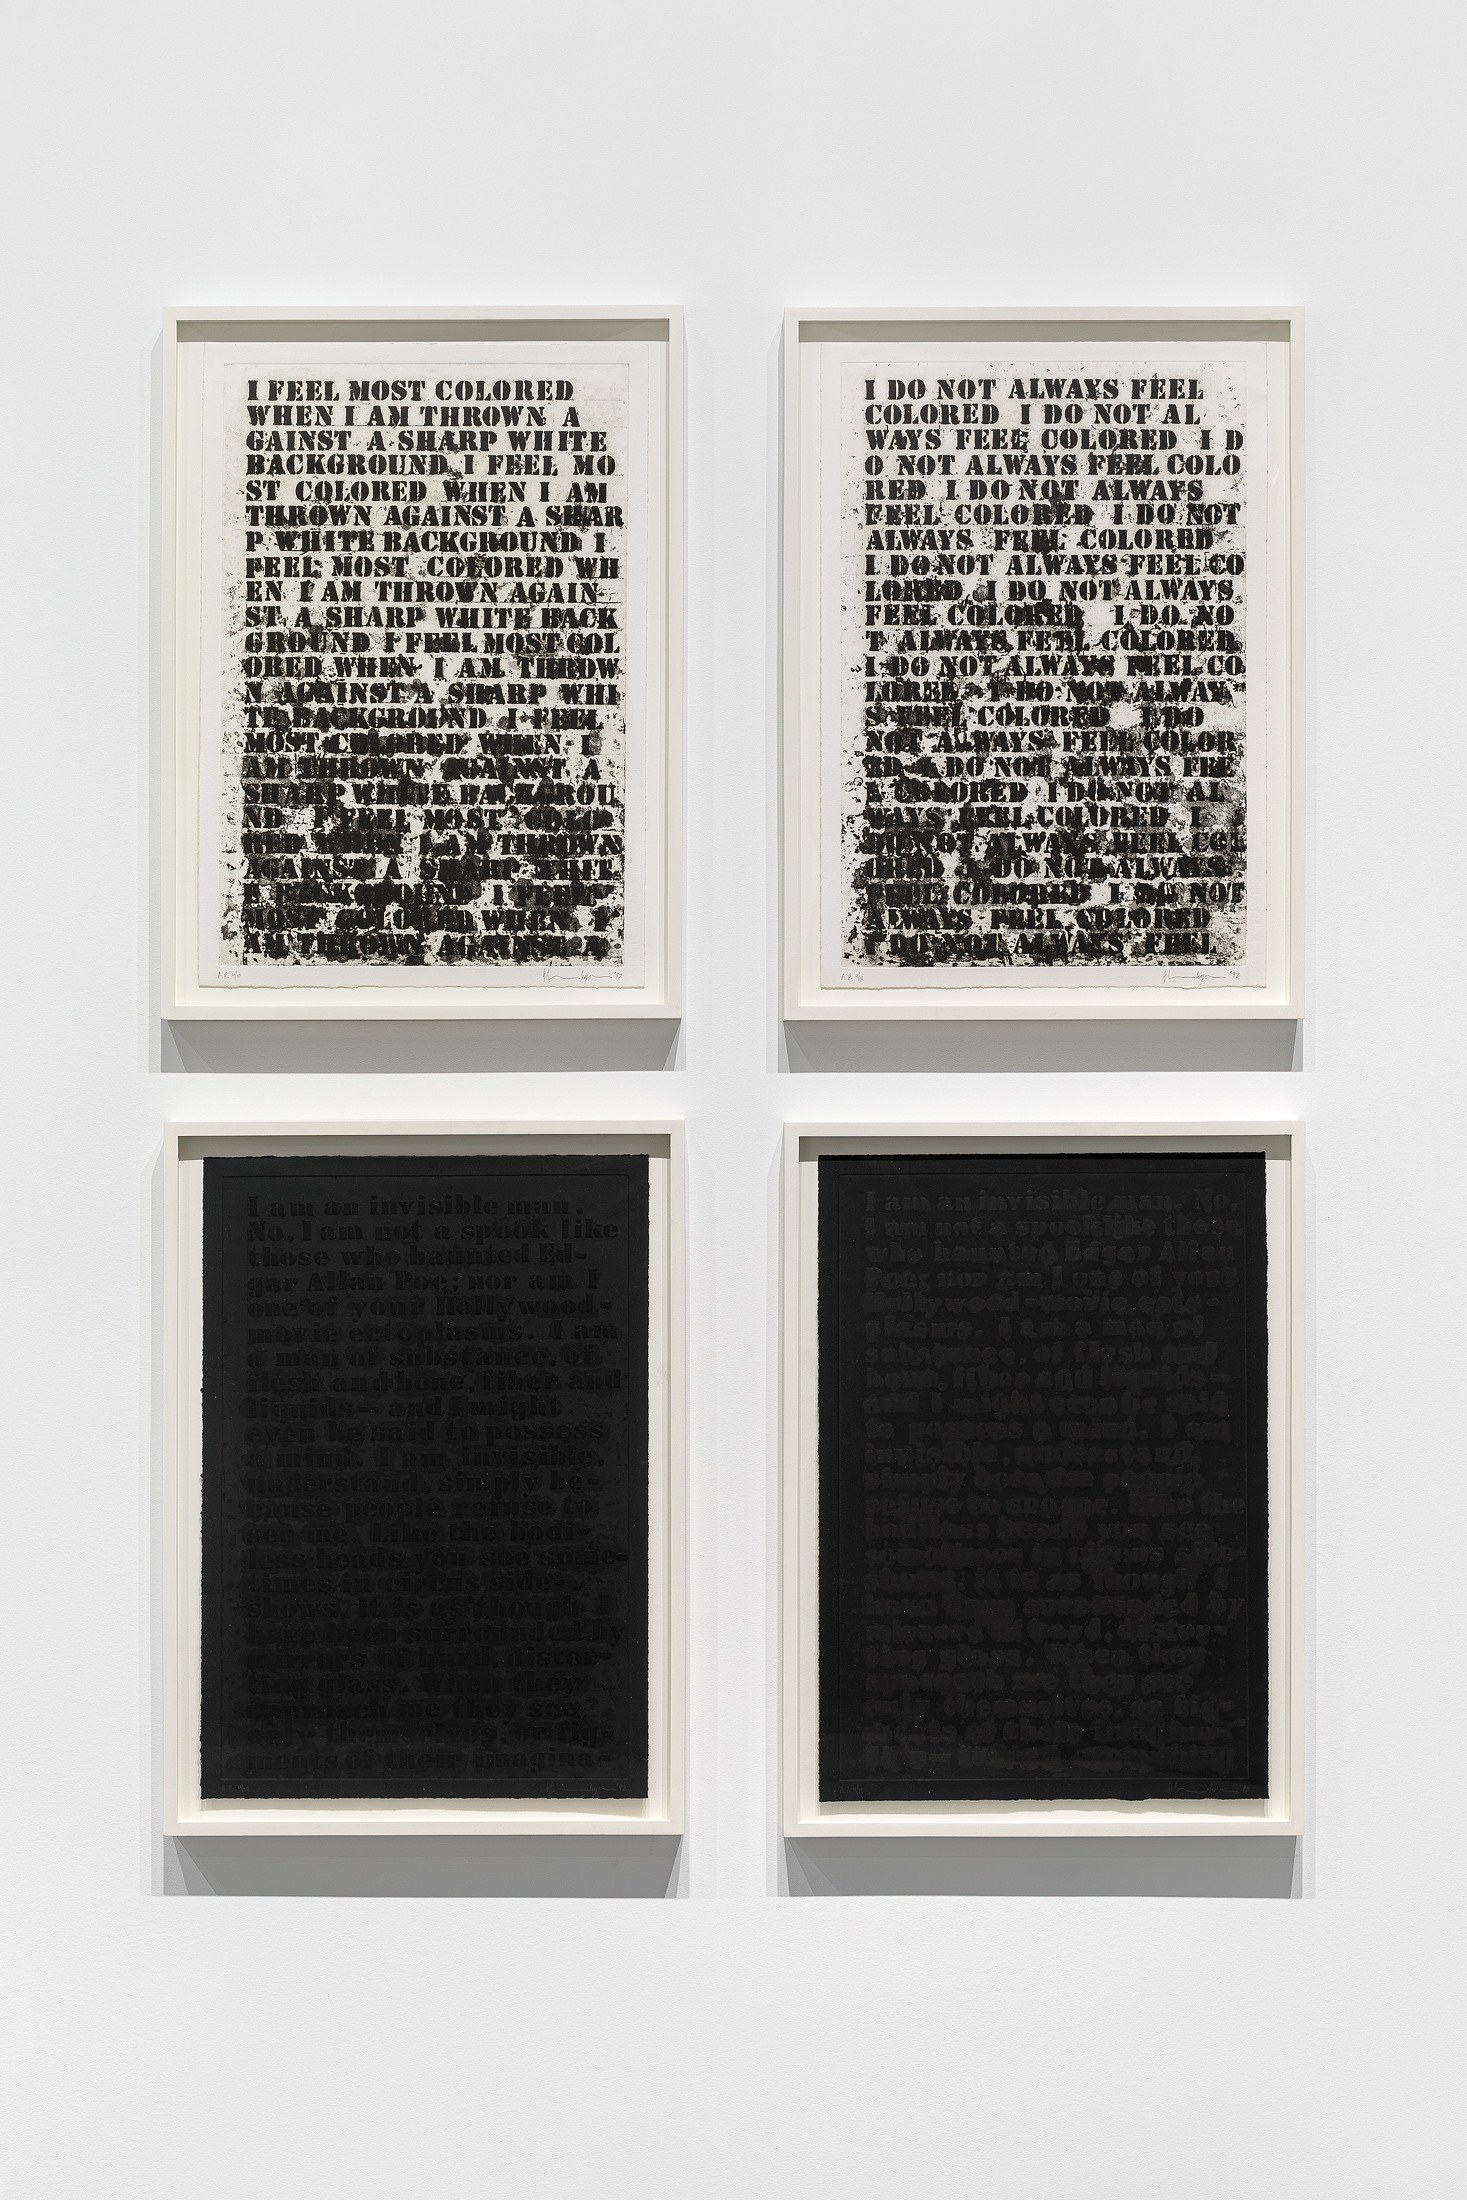 I FEEL MOST COLORED
WHEN I AM THROWN A
GAINST A SHARP WHITE
BACKGROUND I FEEL MO
ST COLORED WHEN I AM
THROWN AGAINST A SHAR
P WHITE BACKGROUND I
FEEL MOST COLORED WH
EN I AM THROWN AGAIN
ST A SHARP WHITE BACK
GROUND I FEEL MOST COL
ORED WHEN I AM THROW
N AGAINST A SHARP WHI
TE BACKGROUND I FEEL
MOST COLORED WHEN I
AM THROWN AGAINST A
SHARP WHITE BACKGROU
ND I FEEL MOST COLO
RED WHEN I AM THROWN
AGAINST A SHARP WHIT
E BACKGROUND I FEEL
MOST COLORED WHEN I
AM THROWN AGAINST A
A.P.
'92
I DO NOT ALWAYS FEEL
COLORED I DO NOT AL
WAYS FEEL COLORED I D
O NOT ALWAYS FEEL COLO
RED I DO NOT ALWAYS
FEEL COLORED I DO NOT
ALWAYS FEEL COLORED
I DO NOT ALWAYS FEEL CO
LORED I DO NOT ALWAYS
FEEL COLORED I DO NO
T ALWAYS FEEL COLORED
I DO NOT ALWAYS FEEL CO
LORED I DO NOT ALWAY
S FEEL COLORED I DO
NOT ALWAYS FEEL COLOR
ED I DO NOT ALWAYS FEE
L COLORED I DO NOT AL
WAYS FEEL COLORED I
DO NOT ALWAYS FEEL COL
ORED I DO NOT ALWAYS
FEEL COLORED I DO NOT
ALWAYS FEEL COLORED
I DO NOT ALWAYS FEEL
A.P.
'92
I am an invisible man.
No, I am not a spook like
those who haunted Ed-
gar Allan Poe; nor am I
one of your Hollywood-
movie ectoplasms. I am
a man of substance, of
flesh and bone, fiber and
liquids—and I might
even be said to possess
a mind. I am invisible,
understand, simply be-
cause people refuse to
see me. Like the bodi-
less heads you see some-
times in circus side-
shows, it is as though I
have been surrounded by
mirrors of hard, distor-
ting glass. When they
approach me they see
only themselves, or fig-
ments of their imagina-
I am an invisible man. No,
I am not a spook like those
who haunted Edgar Allan
Poe; nor am I one of your
Hollywood-movie ecto-
plasms. I am a man of
substance, of flesh and
bone, fiber and liquids—
and I might even be said
to possess a mind. I am
invisible, understand,
simply because people
refuse to see me. Like the
bodiless heads you see
sometimes in circus side-
shows, it is as though I
have been surrounded by
mirrors of hard, distor-
ting glass. When they
approach me they see
only themselves,